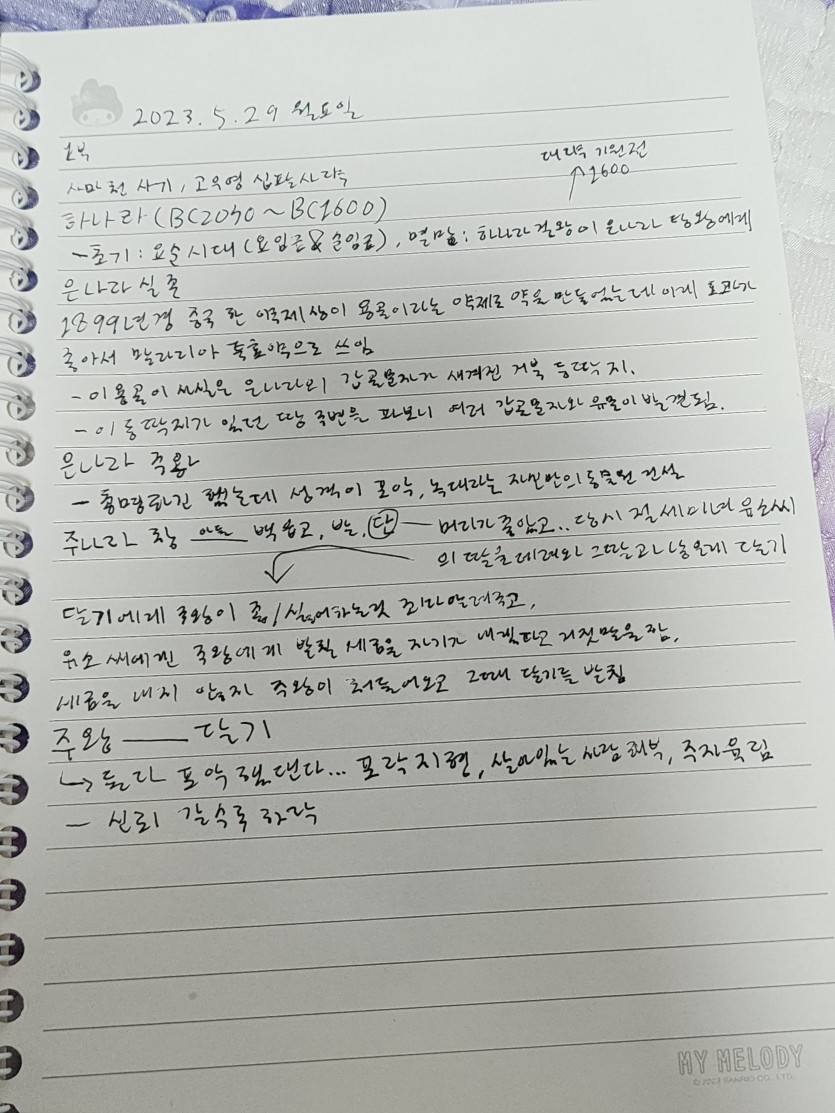 2023. 5. 29 월요일
1부
대략 기원전
↑1600
사마천 사기, 고우영 십팔사략
하나라 (BC2070~BC1600)
-초기: 요순시대 (요임금&순임금), 멸망: 하나라 걸왕이 은나라 탕왕에게
은나라 실존
1899년경 중국 한 약제상이 용골이라는 약제로 약을 만들었는데 이게 효과가
좋아서 말라리아 특효약으로 쓰임
- 이 용골이 사실은 은나라의 갑골문자가 새겨진 거북 등딱지.
- 이 등딱지가 있던 땅 주변을 파보니 여러 갑골문자와 유물이 발견됨.
은나라 주왕
- 총명하긴 했는데 성격이 포악, 녹대라는 자신만의 동물원 건설
주나라 창 아들 백읍고, 발, 단 — 머리가 좋았고.. 당시 절세미녀 유소씨
의 딸을 데려와 그 딸고나 낳은게 달기
달기에게 주왕이 좋/싫어하는것 죄다 알려주고,
유소씨에겐 주왕에게 바칠 세금을 자기가 내겠다고 거짓말을 함,
세금을 내지 않자 주왕이 쳐들어오고 그때 달기를 바침
주왕 —— 달기
↳ 둘다 포악했댄다... 포락지형, 살아있는 사람 해부, 주지육림
- 신뢰 갈수록 하락
MY MELODY